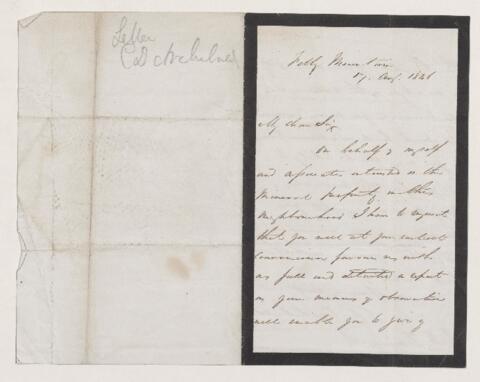 Letter
Mountain
17. Aug. 1846
My dear Sir
On behalf of myself
and associates interested in the
Mineral Property in this
Neighbourhood I have to request
that you will at your earliest
convenience favour us with
as full and detailed a report
as your means of observation
will enable you to give of